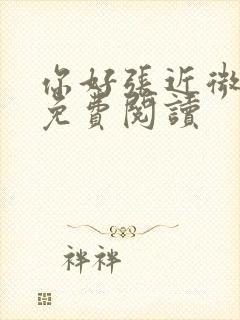 你好張近微
免費閱讀
祥祥